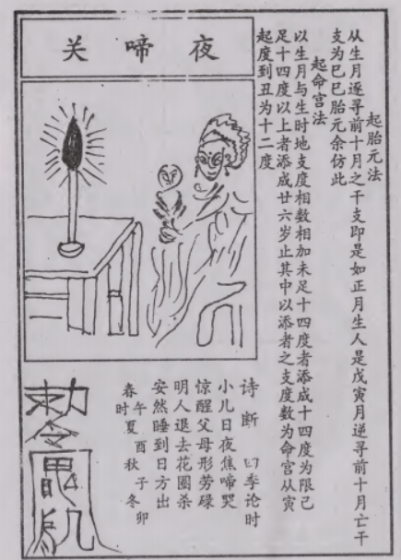 起胎元法
从生月逐寻前十月之干支即是如正月生人是戊寅月逆寻前十月亡干
支为巳巳胎元余仿此
起命宫法
以生月与生时地支度相数相加未足十四度者添成十四度为限已
足十四度以上者添成廿六岁止其中以添者之支度数为命宫从寅
起度到丑为十二度
夜啼关
诗断 四季论时
小儿日夜焦啼哭
惊醒父母形劳碌
明人退去花園杀
安然睡到日方出
春午夏酉秋子冬卯
时
敕令